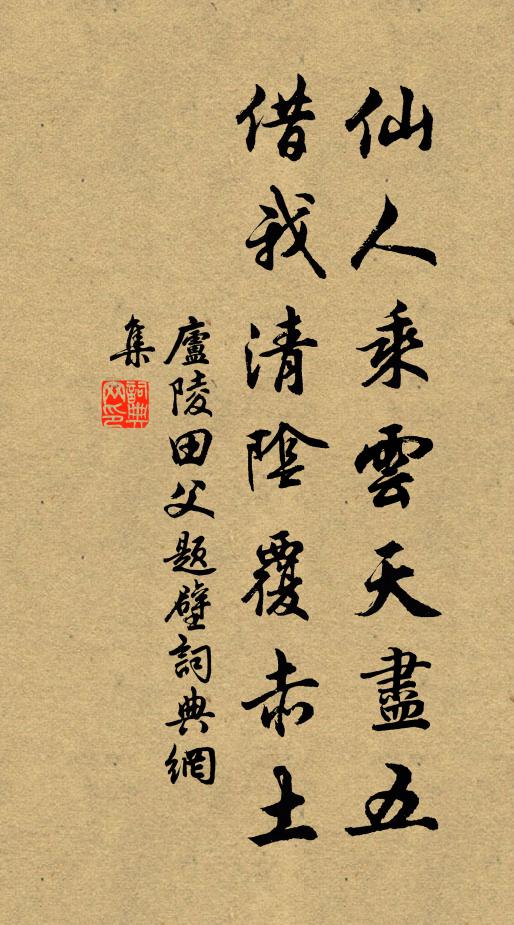 仙人乘雲天盡五
借我清陰覆赤土
廬陵田父題壁詞典網
集
詞典網印